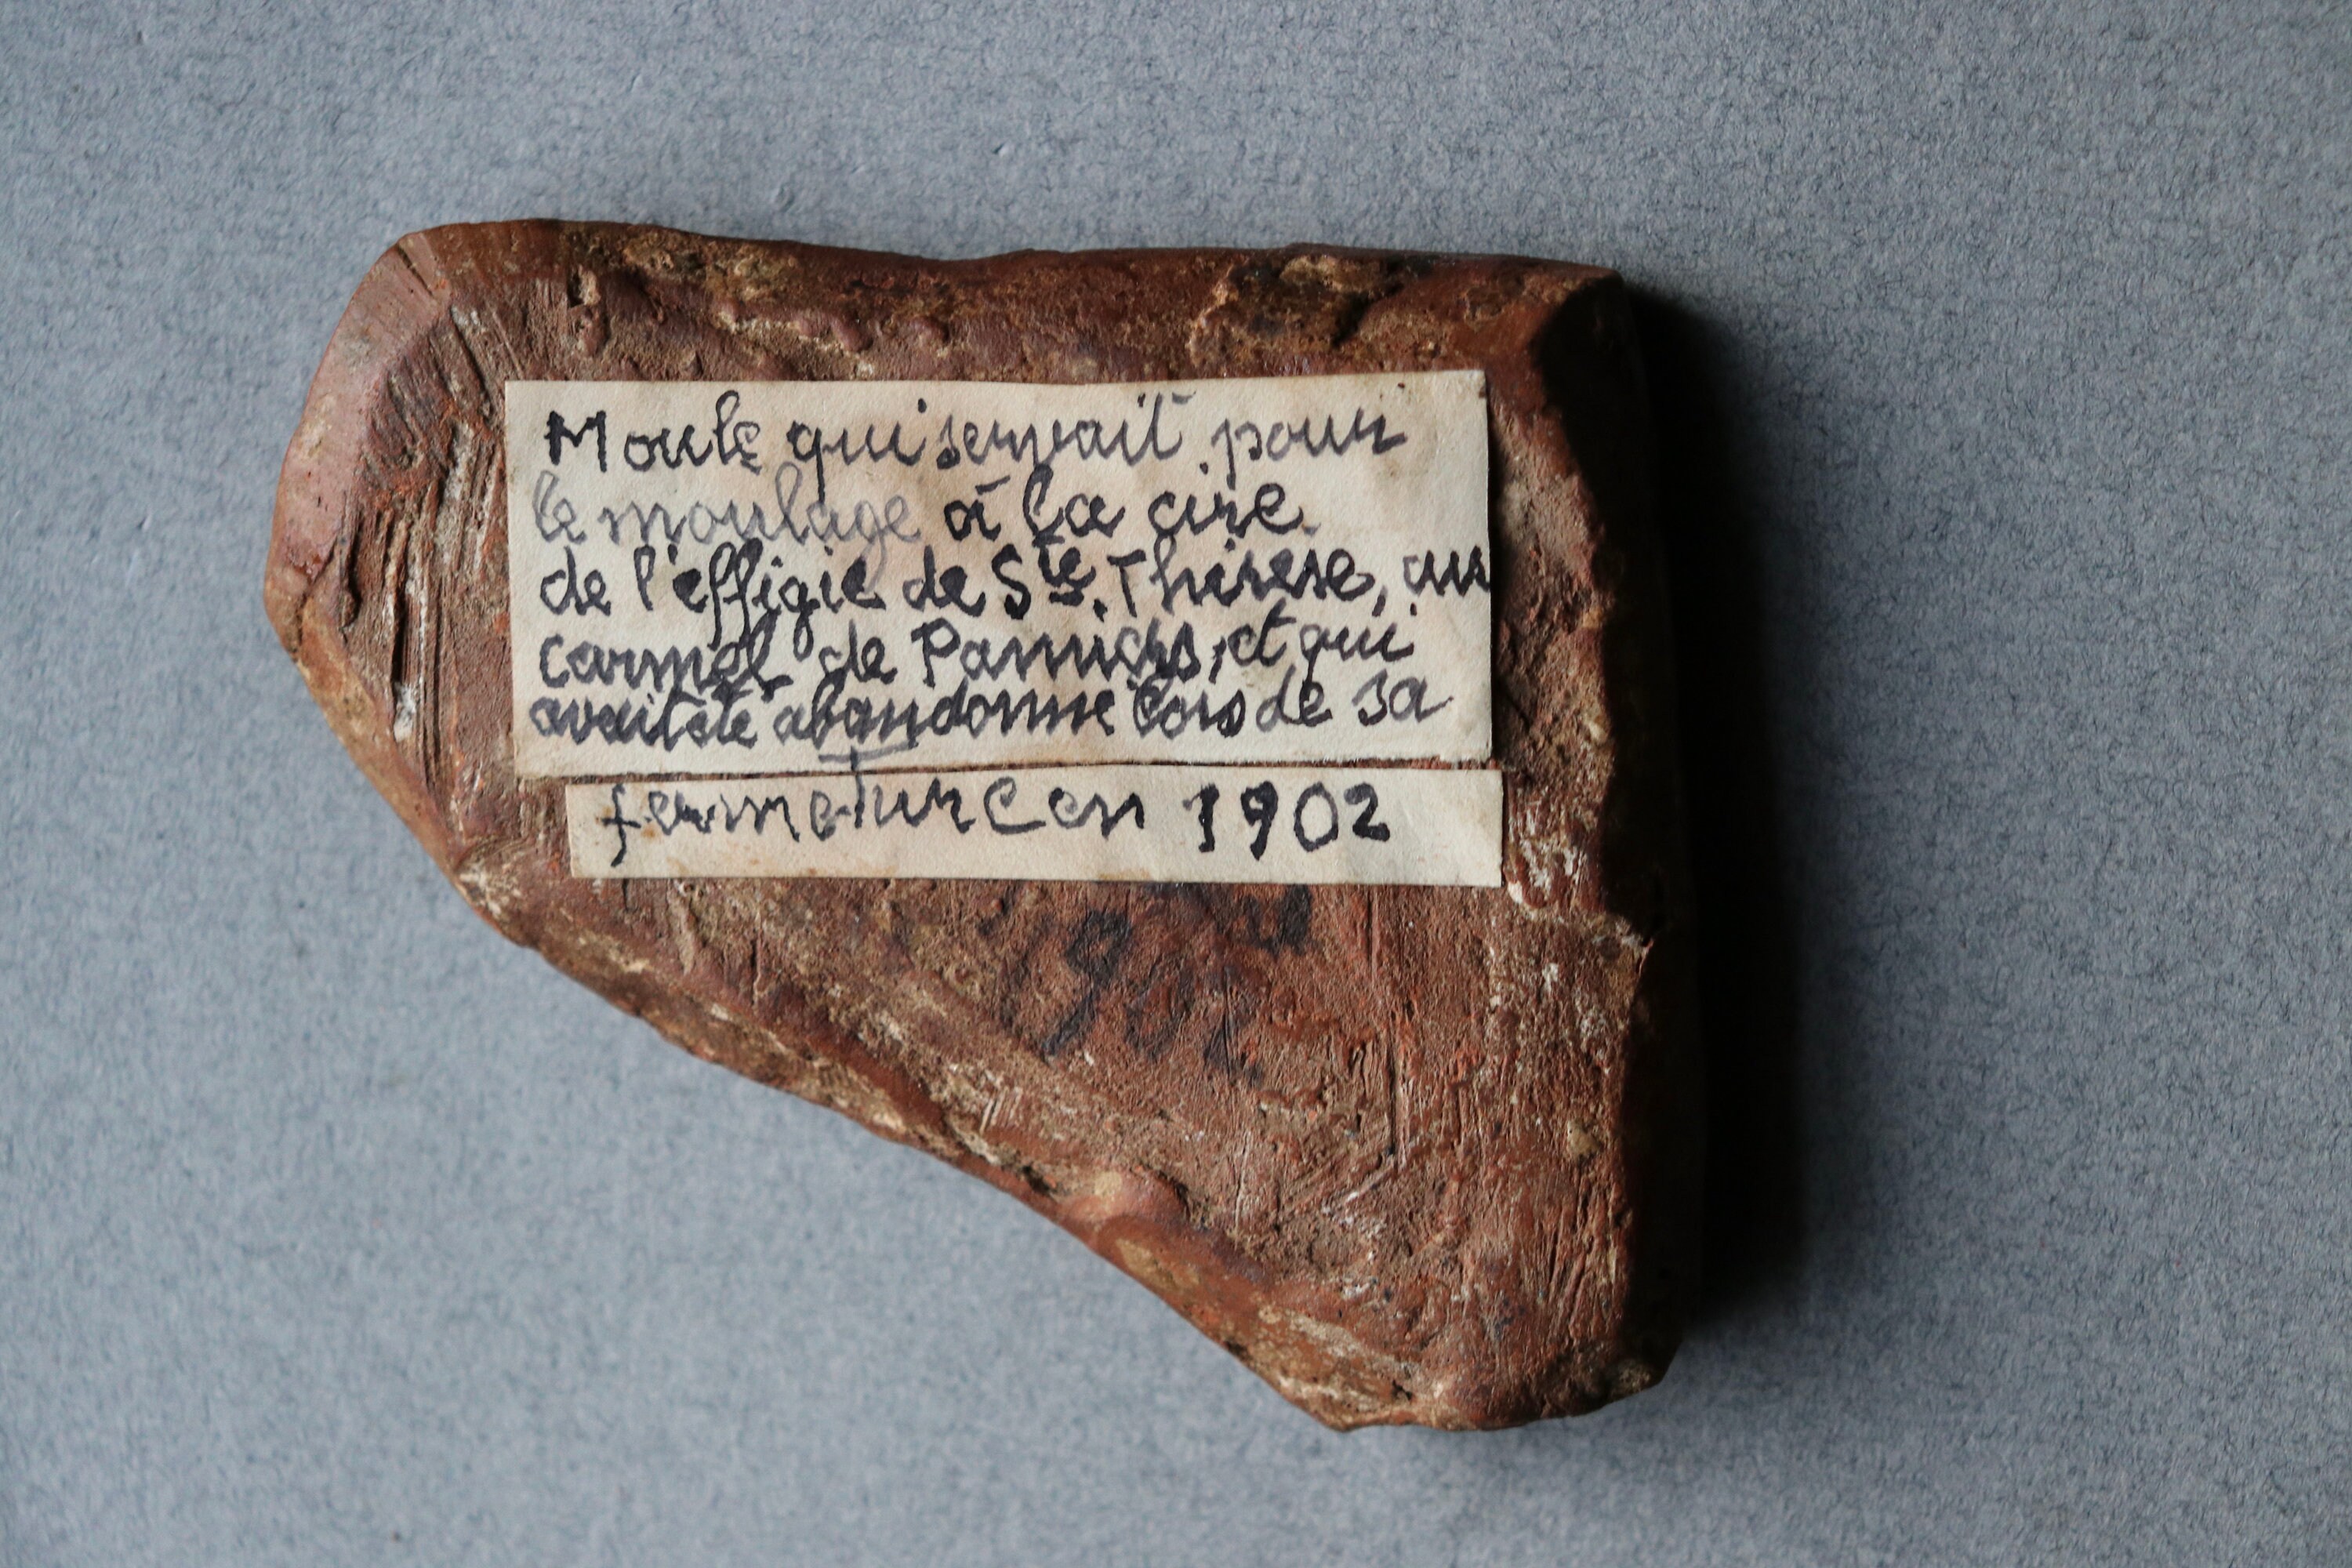 Moule qui servait pour
le moulage à la cire
de l'effigie de Ste. Thérèse, au
carmel de Pamiers, et qui
avait été abandonné lors de sa
fermeture en 1902
1902